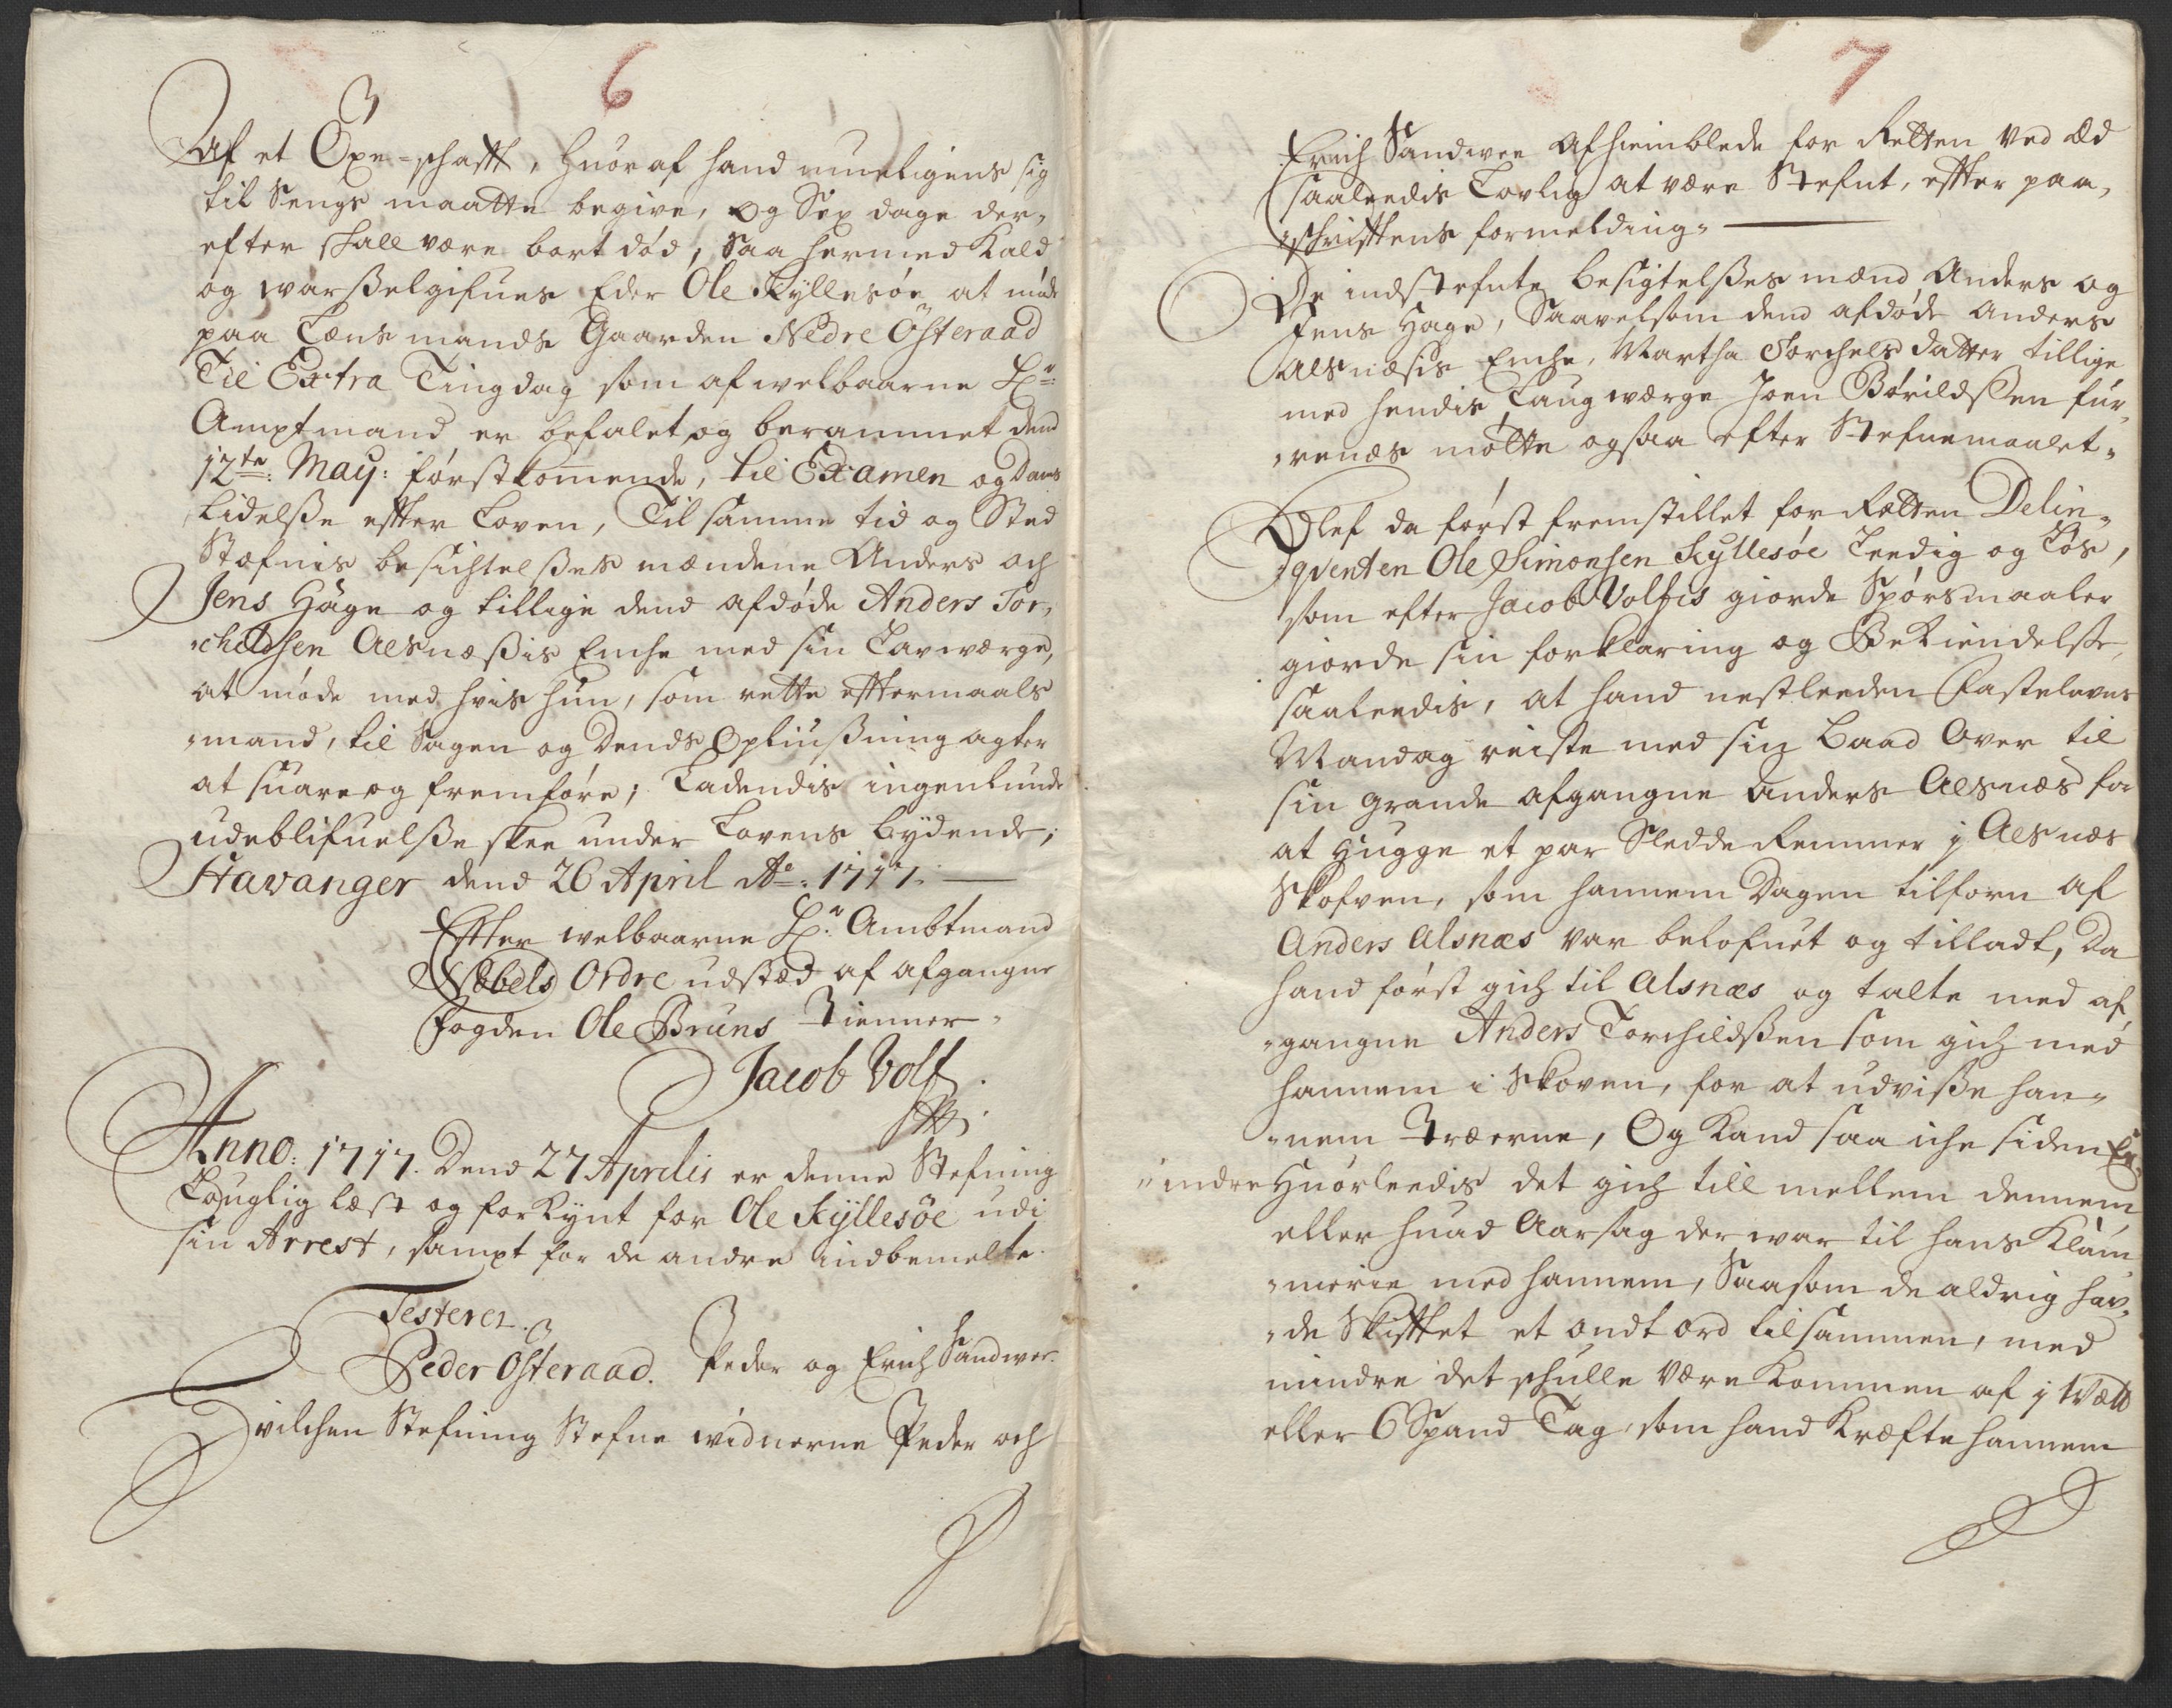 6
Af et Öxe-schafft, huor af hand umeligens sig
til Sengs maatte begive, og Sex dage der,
efter schall være bort död, Saa hermed Kald
og warßelgifues Eder Ole Kyllesöe at möde
paa Lænsmands Gaarden Nedre Österaad
Til Extra Tingdag som af welbaarne Hr:
Amptmand er befalet og berammet dend
12te: May: förstkomende, til Examen og Doms
Lidelße effter Loven, Til samme tid og Sted
Stæfnis besichtelßes mændene Anders och
Jens Hage og tillige dend afdöde Anders Tor,
"chelsen Aesnæßis Encke med sin Lavwærge,
at möde med hvis hun, som rette efftermaals
"mand, til Sagen og dends Opliußning agter
at suare og fremföre; Ladendis ingenlunde
udeblifuelße skee under Lovens bydende;
Stavanger dend 26 April Ao: 1717.
Effter welbaarne Hr: Ambtmand
Nobels Ordre udstæd af afgangne
fogden Ole Bruns Tienner.
Jacob Volf.
Anno: 1717. Dend 27 Aprilis er denne Stefning
Louglig læst og forkynt for Ole Kyllesöe udi
sin Arrest, sampt for de andre indbemelte.
Testerer.
Peder Österaad. Peder og Erich Sandwee.
Hvilchen Stefning Stefne widnerne Peder och
7
Erich Sandwee afhiemblede for Retten Ved Æd
saaleedis Lovlig at være Stefnt, effter paa,
"schrifftens formelding.
De indstefnte besigtelßes mænd Anders og
Jens Hage, Saavelsom dend afdöde Anders
Alsnæsis Encke, Martha Torchels datter tillige
med hendis Laugwærge Joen Börildßen fur,
"renæs mötte ogsaa efter Stefnemaalet.
Blef da först fremstillet for Retten Delin,
"qventen Ole Simonsen Kyllesöe Leedig og Lös,
som efter Jacob Volfes giorde Spörsmaaler
giorde sin forklaring og Bekiendelße,
saaleedis, at hand nestleeden Fastelavns
Mandag reiste med sin Baad Over til
sin grande afgangne Anders Aesnæs for
at Hugge et par Sledde Remmer j Aesnæs
Skofven, som hannem Dagen tilforn af
Anders Alsnæs var belofuet og tilladt, Da
hand först gich til Alsnæs og talte med af,
"gangne Anders Torchildßen som gich med
hannem i Skoven, for at udviße han,
"nem Træerne, Og Kand saa iche siden Er,
"indre Huorleedis det gich till mellem dennem
eller huad Aarsag der war til hans Klam,
"merie med hannem, Saasom de aldrig hav,
"de Skifftet et ondt ord tilsammen, med
mindre det schulle være kommen af j Wætt
eller 6 Spand Tag som hand Kræfte hannem